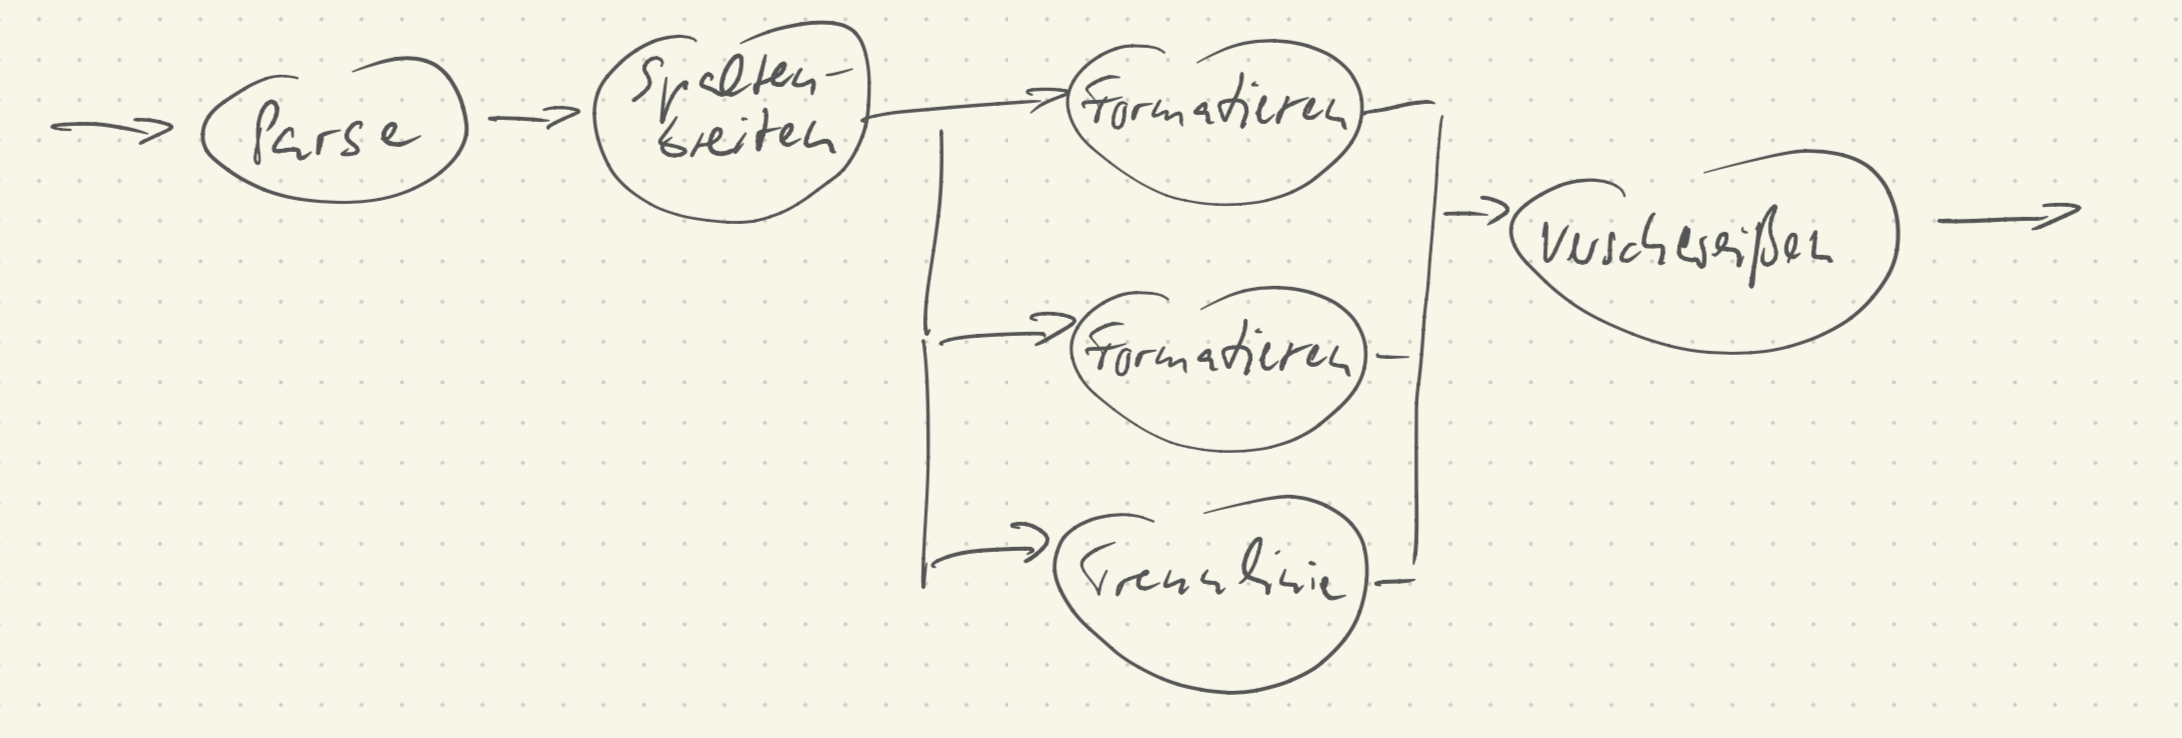 Parse
Spalten-
breiten
Formatieren
Formatieren
Trennlinie
Verschweißen